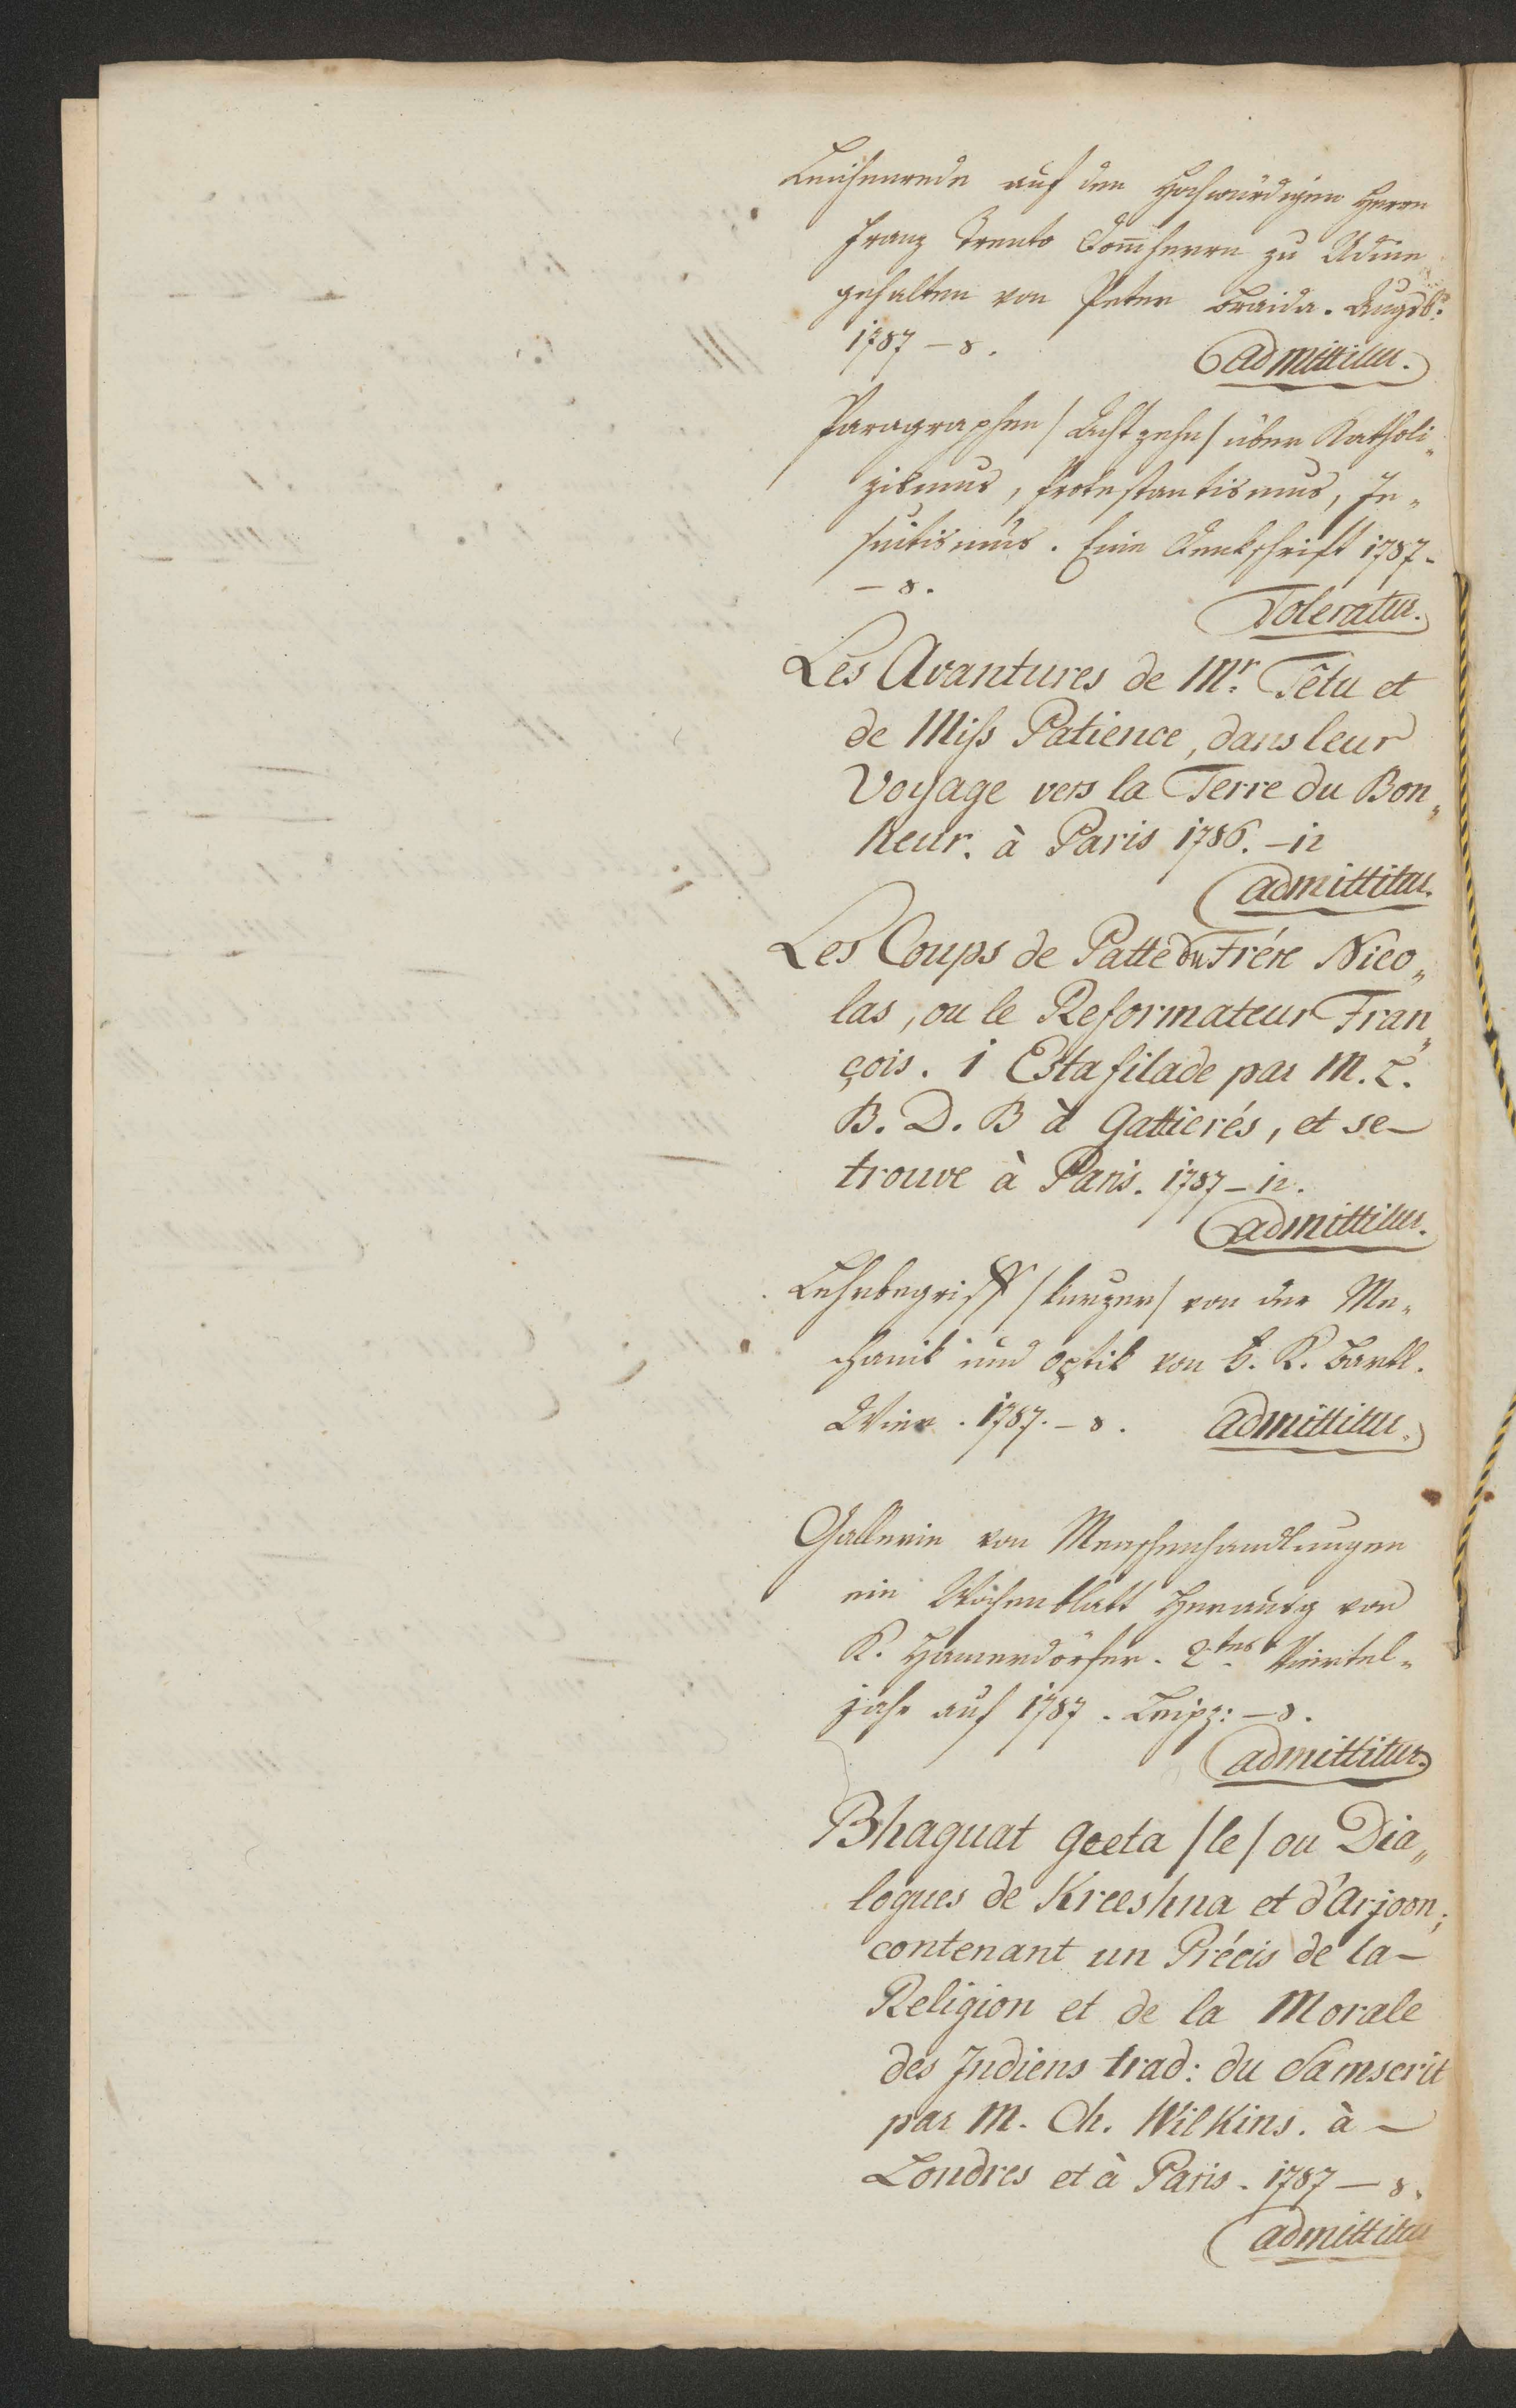 Leichenrede auf den Hochwürdigen Herrn
Franz Trento Dom̃herrn zu Udine
gehalten von Peter Braida. Augsb:
1787 – 8.
Admittitur.
Paragraphen / Achtzehn / über Katholi„
zismus, Protestantismus, Je„
suitismus. Eine Denkschrift 1787–
– 8.
Toleratur.
Les Avantures de Mr. Têtu et
de Miss Patience, dans leur
Voyage vers la Terre du Bon„
heur. à Paris 1786. – 12
admittitur.
Les Coups de Patte du Frére Nico„
las, ou le Reformateur Fran„
çois. 1 Estafilade par M. L.
B. D. B à Gattierés, et se–
trouve à Paris. 1787 – 12.
admittitur.
Lehrbegriff / kurzer / von der Me„
chanik und Optik von b. K. Bartl.
Wien. 1787. – 8. admittitur.
Gallerie von Menschenhandlungen
ein Wochenblatt Herausg von
K. Hamerdörfer. 2tes Viertel„
jahr auf 1787. Leipz: – 8.
admittitur.
Bhaguat Geeta / le / ou Dia„
logues de Kreeshna et d'Arjoon;
contenant un Précis de la–
Religion et de la Morale
des Indiens trad: du Samscrit
par M. Ch. Wilkins. à –
Londres et à Paris. 1787 – 8.
admittitur